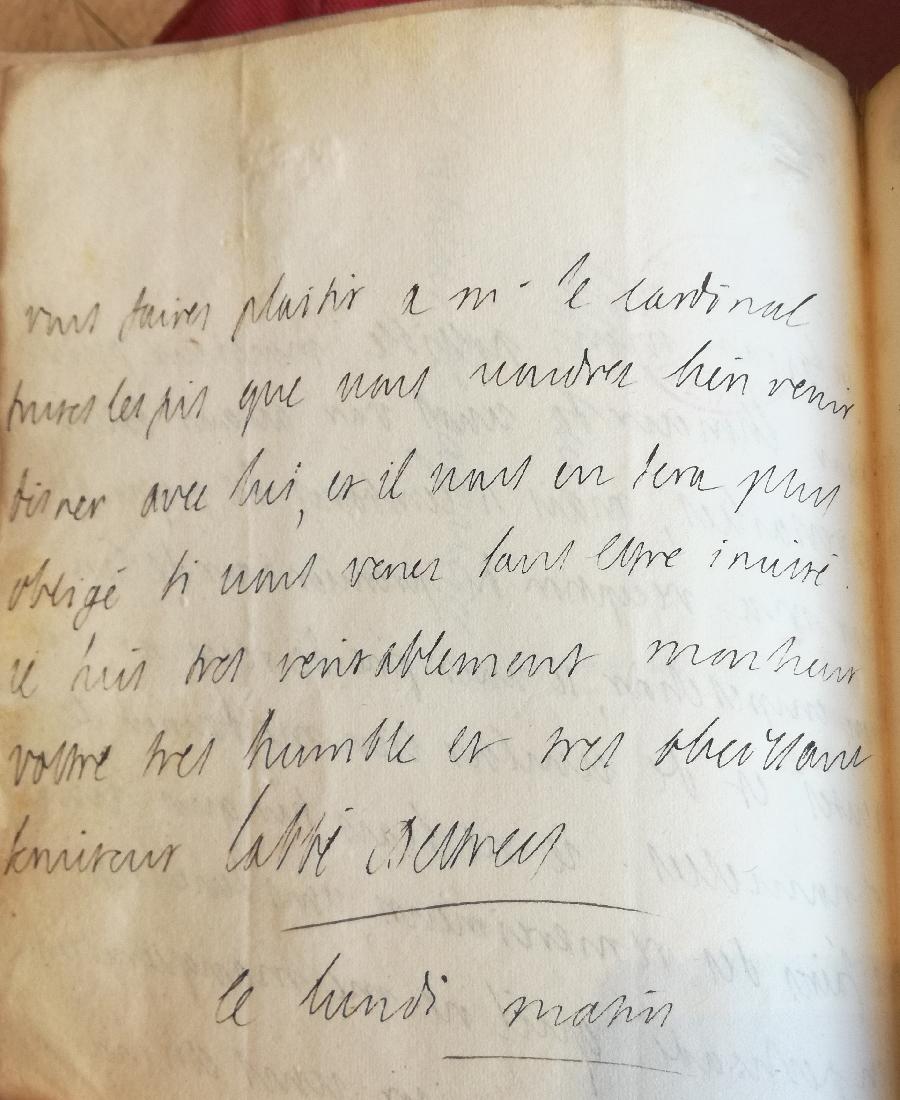 vous faires plaisir a mr le cardinal
toutes les fois que vous voudres bien venir
disner avec lui, et il vous en sera plus
obligé si vous venes sans estre invité.
ie suis tres veritablement monsieur
vostre tres humble et tres obeissant
serviteur labbé
le lundi matin